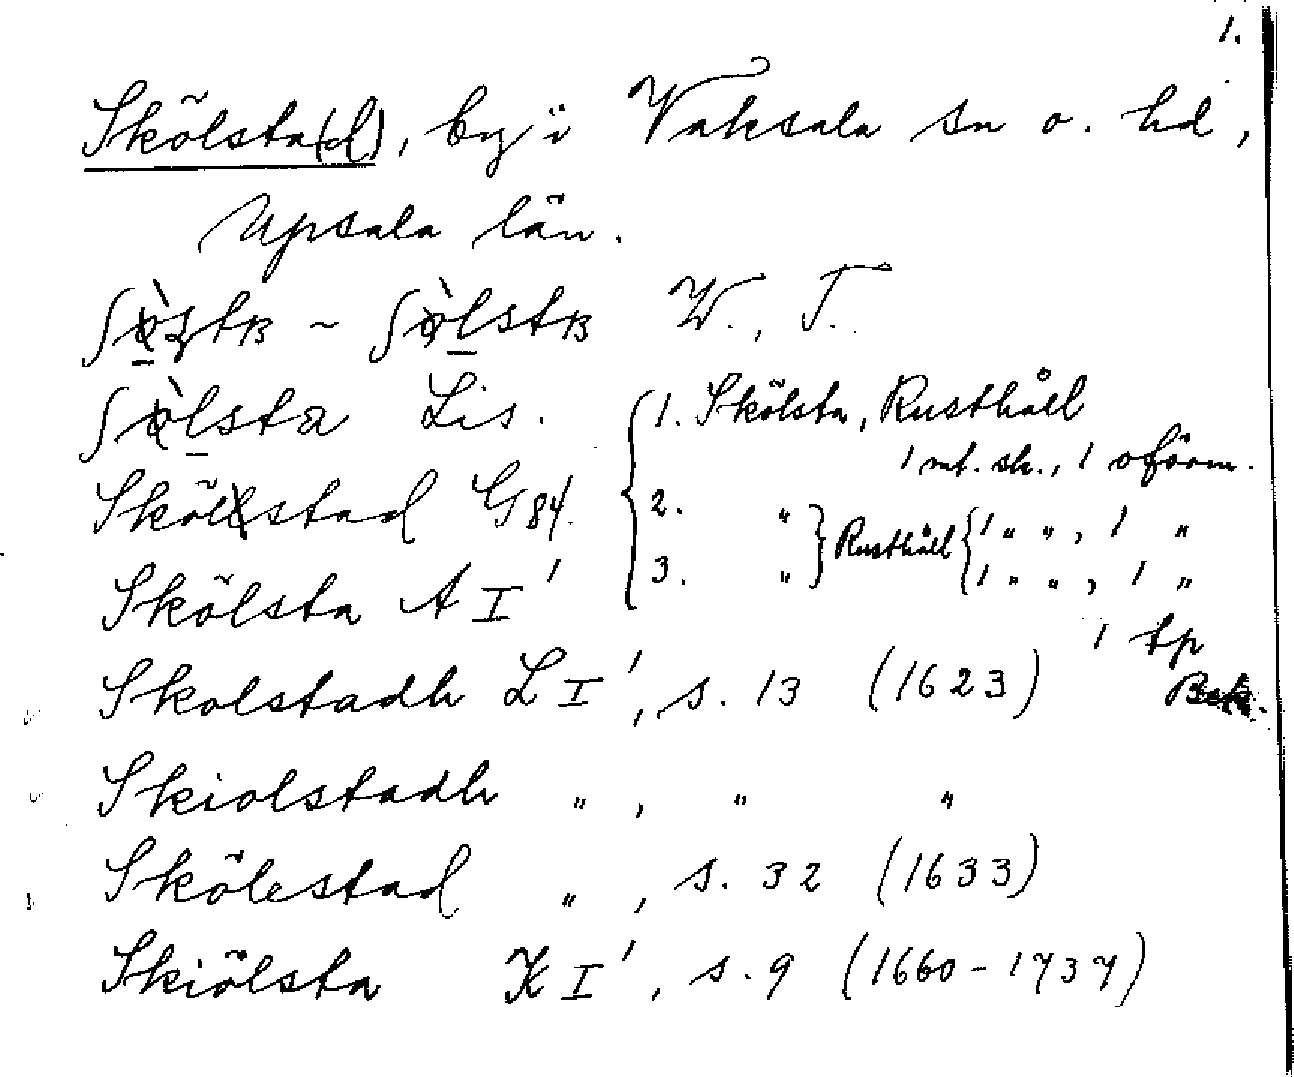 1.
Skölsta(d), by i Vaksala sn o. hd,
Upsala län.
W., T.
Lis.
1. Skölsta, Rusthåll
1 mt. sk., 1 oförm.
Skölestad G 84.
2. " } Rusthåll { 1 " ", 1 "
3. " 1 " ", 1 "
Skölsta A I'
1 tp
Skolstadh L I', s. 13 (1623)
Skiolstadh ", " "
Skölestad ", s. 32 (1633)
Skiölsta K I', s. 9 (1660-1737)